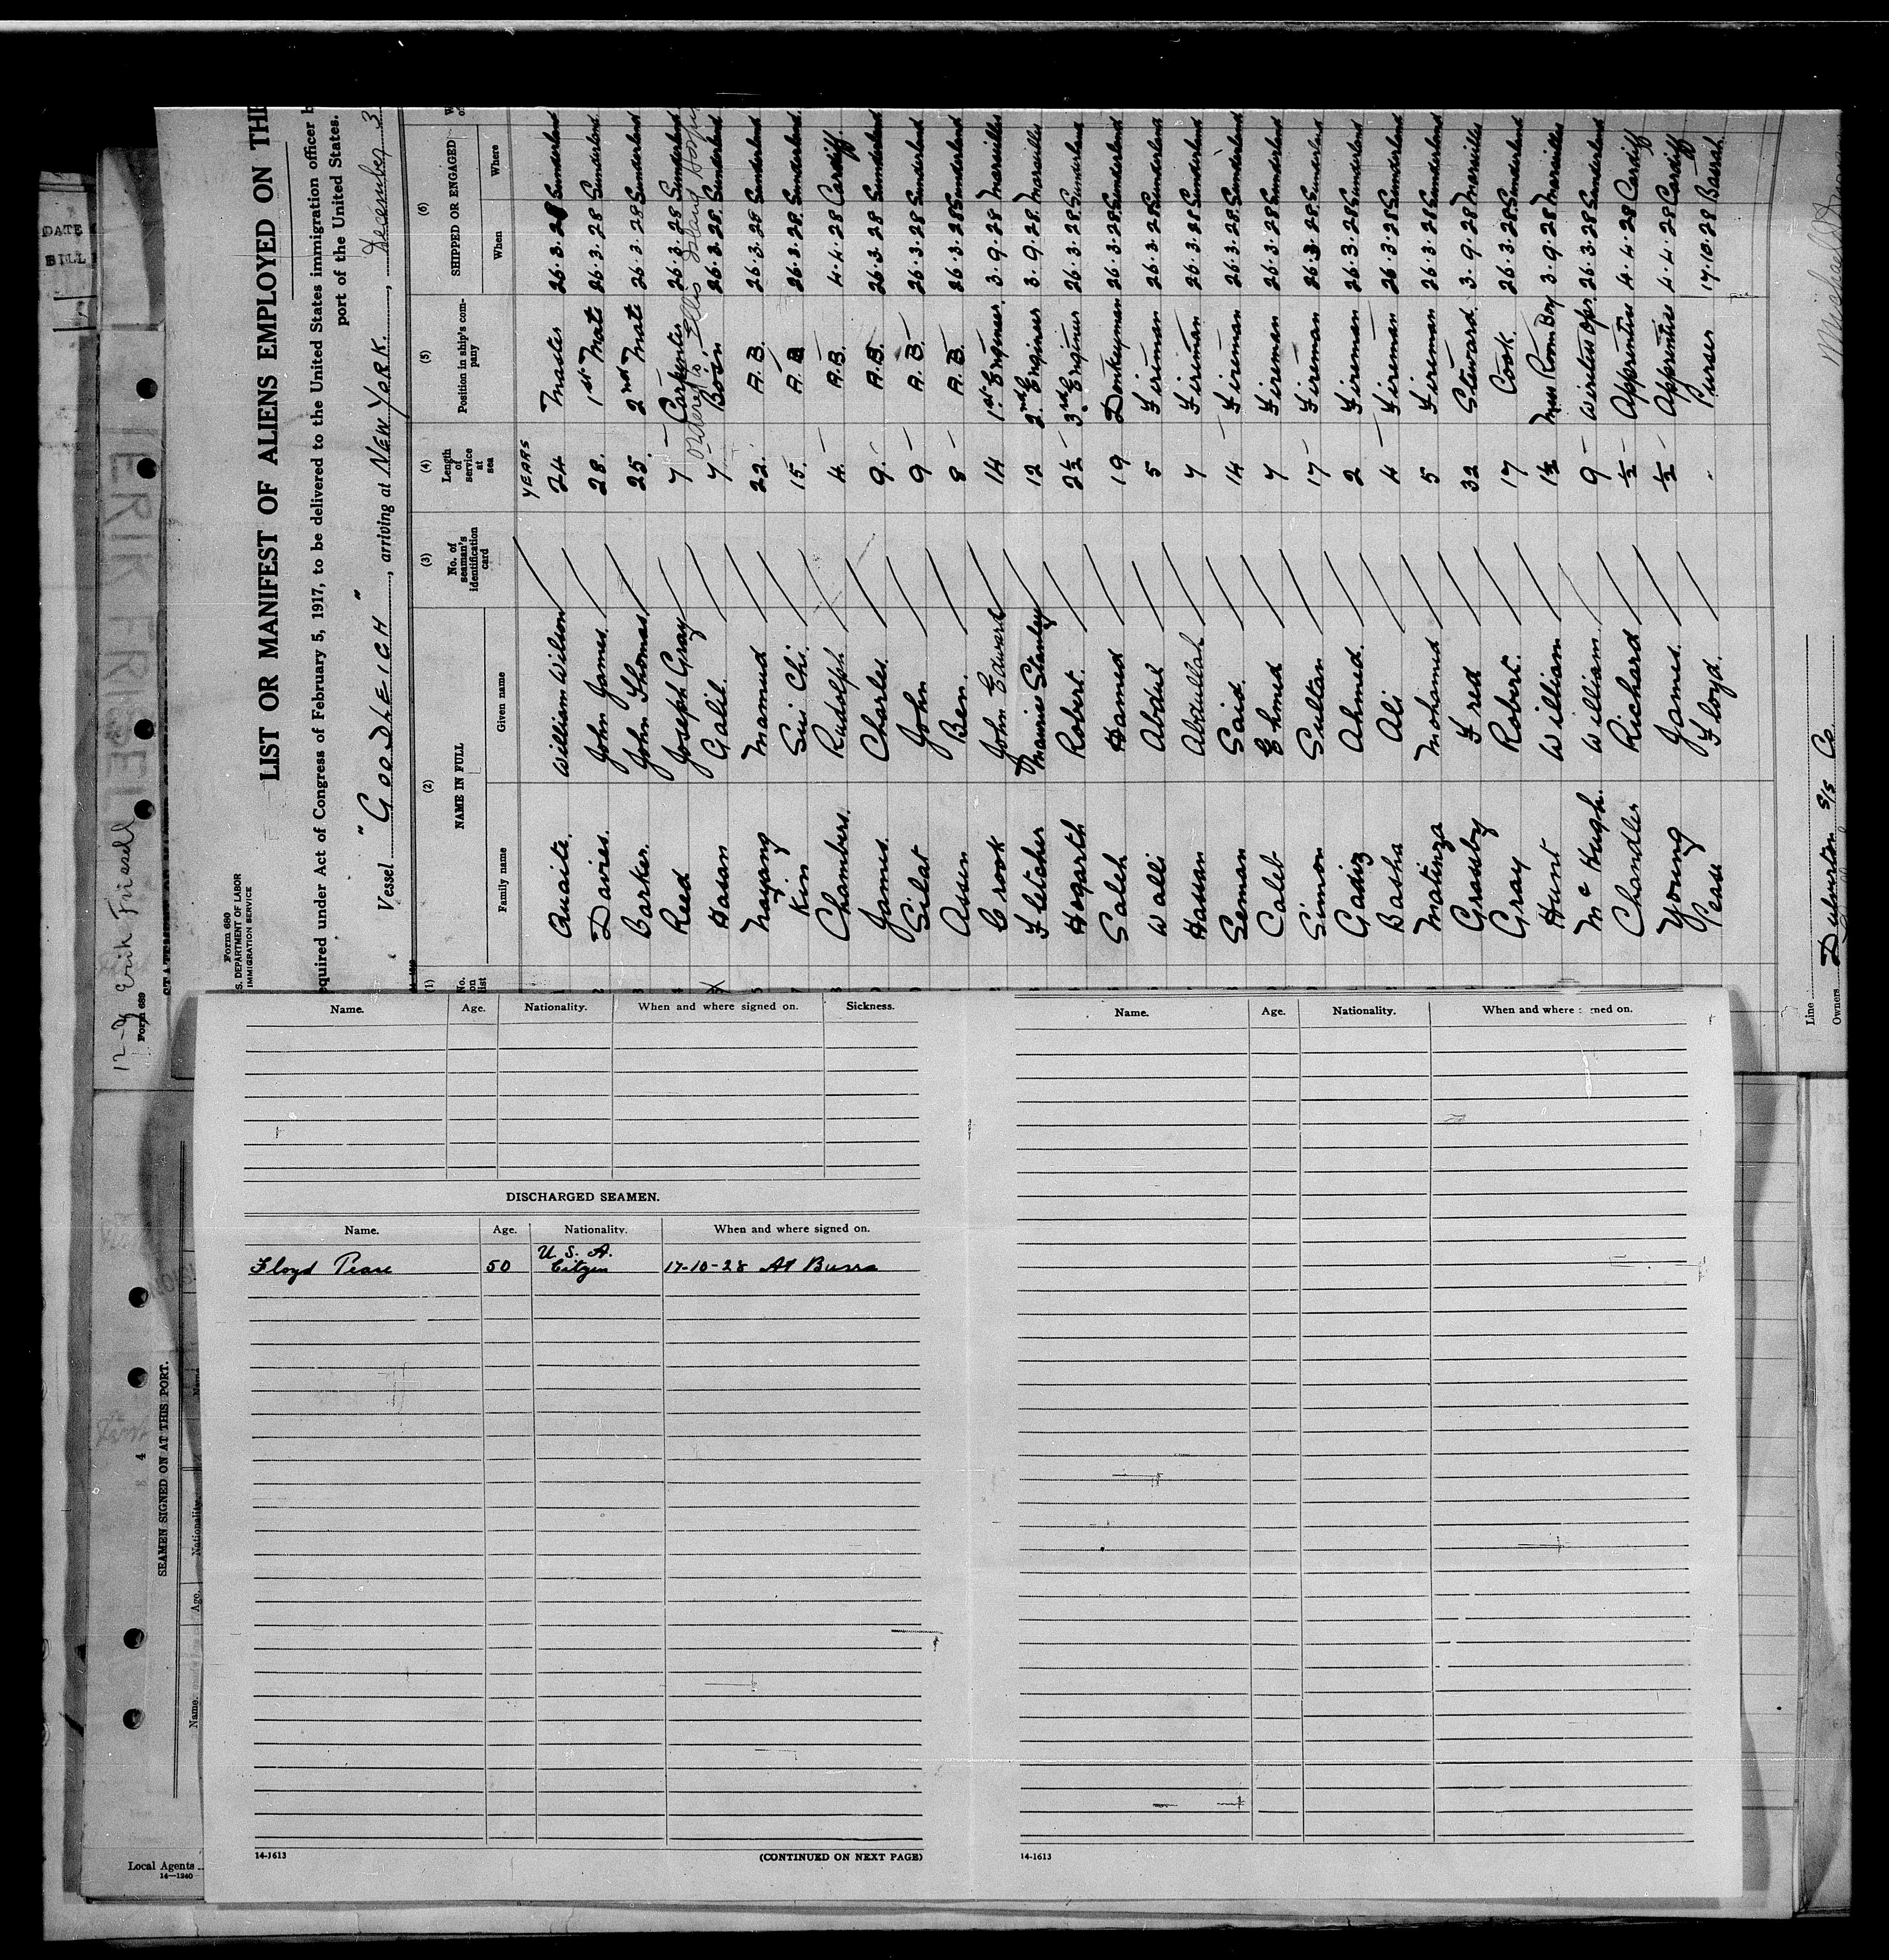 DATE
BILL
12-9 Erik Frisell
Form 689
ERIK FRISELL
Form 680
S. DEPARTMENT OF LABOR
IMMIGRATION SERVICE
LIST OR MANIFEST OF ALIENS EMPLOYED ON THE
equired under Act of Congress of February 5, 1917, to be delivered to the United States immigration officer b
port of the United States.
Vessel "GOODLEIGH", arriving at NEW YORK, December 3
(1) (2) (3) (4) (5) (6)
No. on list NAME IN FULL No. of seaman's identification card Length of service at sea Position in ship's company SHIPPED OR ENGAGED
Family name Given name When Where
YEARS
Quaite. William Wilson 24 Master 26.3.28 Sunderland
Davies. John James 28. 1st Mate 26.3.28 Sunderland
Barker. John Thomas 25. 2nd Mate 26.3.28 Sunderland
Reed Joseph Gray 7 Carpenter 26.3.28 Sunderland
Hasan Galil. 7 Bosn 26.3.28. Sunderland
Ordered to Ellis Island
Nayang Mamud 22. A.B. 26.3.28 Sunderland
Kin Sui Chi. 15. A.B 26.3.28. Sunderland.
Chambers. Rudolph 4. A.B. 4.4.28 Cardiff.
James. Charles. 9. A.B. 26.3.28 Sunderland
Silat John 9 A.B. 26.3.28 Sunderland
Assin Ben. 8 A.B. 26.3.28 Sunderland
Crook John Edward 14 1st Engineer. 3.9.28 Marseilles
Fletcher Maurice Stanley 12 2nd Engineer 3.9.28. Marseilles
Hogarth Robert. 2½ 3rd Engineer 26.3.28. Sunderland
Saleh Hamed 19 Donkeyman 26.3.28. Sunderland
Walli Abdul 5 Fireman 26.3.28 Sunderland
Hassan Abdullah 7 Fireman 26.3.28 Sunderland
Seman Said. 14 Fireman 26.3.28. Sunderland
Caleb Ehmed 7 Fireman 26.3.28 Sunderland
Simon Sultan 17 Fireman 26.3.28. Sunderland
Gadiz Ahmed. 2 Fireman 26.3.28 Sunderland
Basha Ali 4 Fireman 26.3.28 Sunderland
Matinza Mohamed 5 Fireman 26.3.28 Sunderland
Grassby Fred 32 Steward 3.9.28 Marseilles
Gray Robert. 17 Cook. 26.3.28 Sunderland
Hunt William 1½ Mess Room Boy 3.9.28 Marseilles
McHugh. William. 9 Wireless Opr. 26.3.28 Sunderland
Chandler Richard ½ Apprentice 4.4.28 Cardiff
Young James. ½ Apprentice 4.4.28 Cardiff
Pease Floyd. Purser 17.10.28 Basrah.
Line
Owners S/S Co
Michael
Name. Age. Nationality. When and where signed on. Sickness.
DISCHARGED SEAMEN.
Name. Age. Nationality. When and where signed on.
Floyd Pease 50 U.S.A. Citizen 17-10-28 At Busra
14-1613 (CONTINUED ON NEXT PAGE)
Name. Age. Nationality. When and where signed on.
14-1613
4
SEAMEN SIGNED ON AT THIS PORT.
Name. Age. Nationality.
Local Agents
14—1240